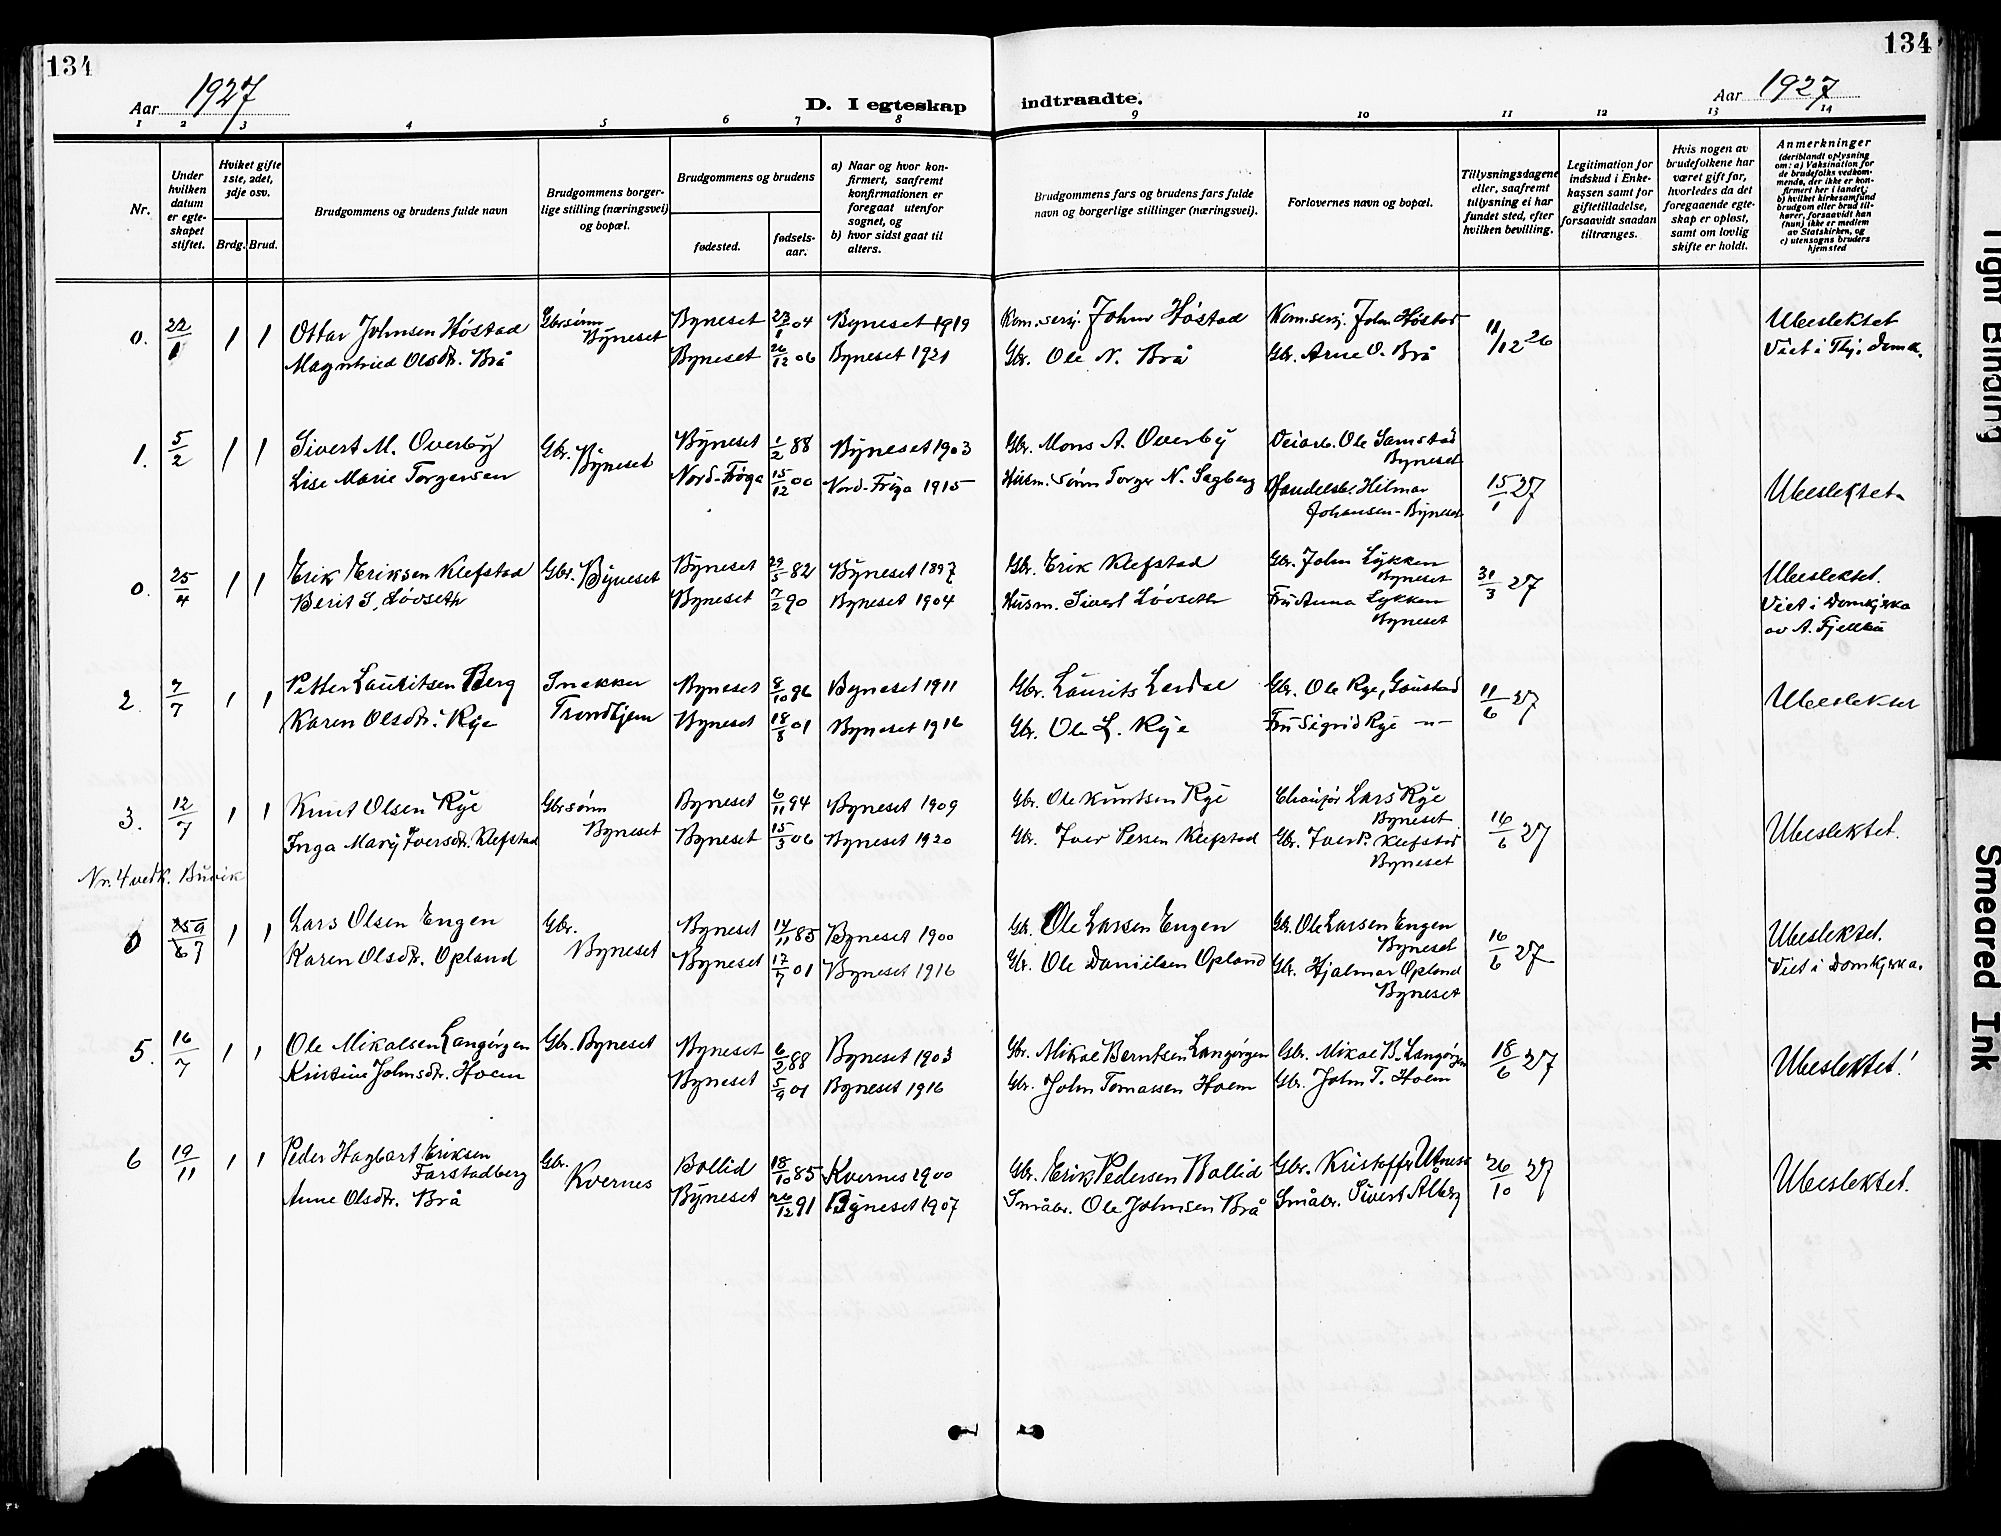 134
134
Aar 1927
D. I egteskap indtraadte.
Aar 1927
1 2 3 4 5 6 7 8 9 10 11 12 13 14
Nr.
Under hvilken datum er egteskapet stiftet.
Hviket gifte 1ste, 2det, 3dje osv.
Brdg. Brud.
Brudgommens og brudens fulde navn
Brudgommens borgerlige stilling (næringsvei) og bopæl.
Brudgommens og brudens
fødested.
fødselsaar.
a) Naar og hvor konfirmert, saafremt konfirmationen er foregaat utenfor sognet, og
b) hvor sidst gaat til alters.
Brudgommens fars og brudens fars fulde navn og borgerlige stillinger (næringsvei).
Forlovernes navn og bopæl.
Tillysningsdagene eller, saafremt tillysning ei har fundet sted, efter hvilken bevilling.
Legitimation for indskud i Enkekassen samt for giftetilladelse, forsaavidt saadan tiltrænges.
Hvis nogen av brudefolkene har været gift før, hvorledes da det foregaaende egteskap er opløst, samt om lovlig skifte er holdt.
Anmerkninger
(deriblandt oplysning om: a) Vaksination for de brudefolks vedkommende, der ikke er konfirmert her i landet; b) hvilket kirkesamfund brudgom eller brud tilhører, forsaavidt han (hun) ikke er medlem av Statskirken, og c) utensogns bruders hjemsted
0. 22/1 1 1 Ottar Johnsen Høstad Gbrsønn Byneset Byneset 23/1 04 Byneset 1919 Kom.sersj. John Høstad Kom.sersj. John Høstad 11/12 26 Ubeslektet
Magnhild Olsdtr. Brå Byneset 26/12 06 Byneset 1921 Gbr. Ole N. Brå Gbr. Arne O. Brå Viet i Thj. domk.
1. 5/2 1 1 Sivert M. Overby Gbr. Byneset Byneset 1/2 88 Byneset 1903 Gbr. Mons A. Overby Veiarb. Ole Samstad Byneset
Lise Marie Torgersen Nord-Frøya 15/12 00 Nord-Frøya 1915 Husm.sønn Torger N. Sagberg Handelsb. Hilmar Johansen - Byneset 15/1 27 Ubeslektet
0. 25/4 1 1 Erik Eriksen Klefstad Gbr. Byneset Byneset 29/5 82 Byneset 1897 Gbr. Erik Klefstad Gbr. John Lykken Byneset 31/3 27 Ubeslektet.
Berit S. Løvseth Byneset 7/2 90 Byneset 1904 Husm. Sivert Løvseth Fru Anna Lykken Byneset Viet i Domkjrka av A. Fjellbu
2. 7/7 1 1 Petter Lauritsen Berg Snekker Trondhjem Byneset 8/10 96 Byneset 1911 Gbr. Laurits Lerdal Gbr. Ole Rye, Gaustad 11/6 27 Ubeslektet
Karen Olsdtr. Rye Byneset 18/8 01 Byneset 1916 Gbr. Ole L. Rye Fru Sigrid Rye -"-
3. 12/7 1 1 Knut Olsen Rye Gbrsønn Byneset Byneset 6/11 94 Byneset 1909 Gbr. Ole Knutsen Rye Chauffør Lars Rye Byneset 16/6 27 Ubeslektet.
Inga Mary Iversdtr. Klefstad Byneset 15/3 06 Byneset 1920 Gbr. Iver Persen Klefstad Gbr. Iver P. Klefstad Byneset
Nr. 4 vedk. Buvik
0 1 1 Lars Olsen Engen Gbr. Byneset Byneset 14/11 85 Byneset 1900 Gbr. Ole Larsen Engen Gbr. Ole Larsen Engen Byneset 16/6 27 Ubeslektet.
Karen Olsdtr. Opland Byneset 17/7 01 Byneset 1916 Gbr. Ole Danielsen Opland Gbr. Hjalmar Opland Byneset Viet i Domkjrka.
5. 16/7 1 1 Ole Mikalsen Langørgen Gbr. Byneset Byneset 6/2 88 Byneset 1903 Gbr. Mikal Berntsen Langørgen Gbr. Mikal B. Langørgen 18/6 27 Ubeslektet!
Kristine Johnsdtr. Hoem Byneset 5/9 01 Byneset 1916 Gbr. John Tomassen Hoem Gbr. John T. Hoem
6 19/11 1 1 Peder Hagbart Eriksen Farstadberg Gbr. Kvernes Bollid 18/10 85 Kvernes 1900 Gbr. Erik Pedersen Bollid Gbr. Kristoffer Utness 26/10 27 Ubeslektet.
Anne Olsdtr. Brå Byneset 26/12 91 Byneset 1907 Småbr. Ole Johnsen Brå Småbr. Sivert Alberg
Tight Binding
Smeared Ink